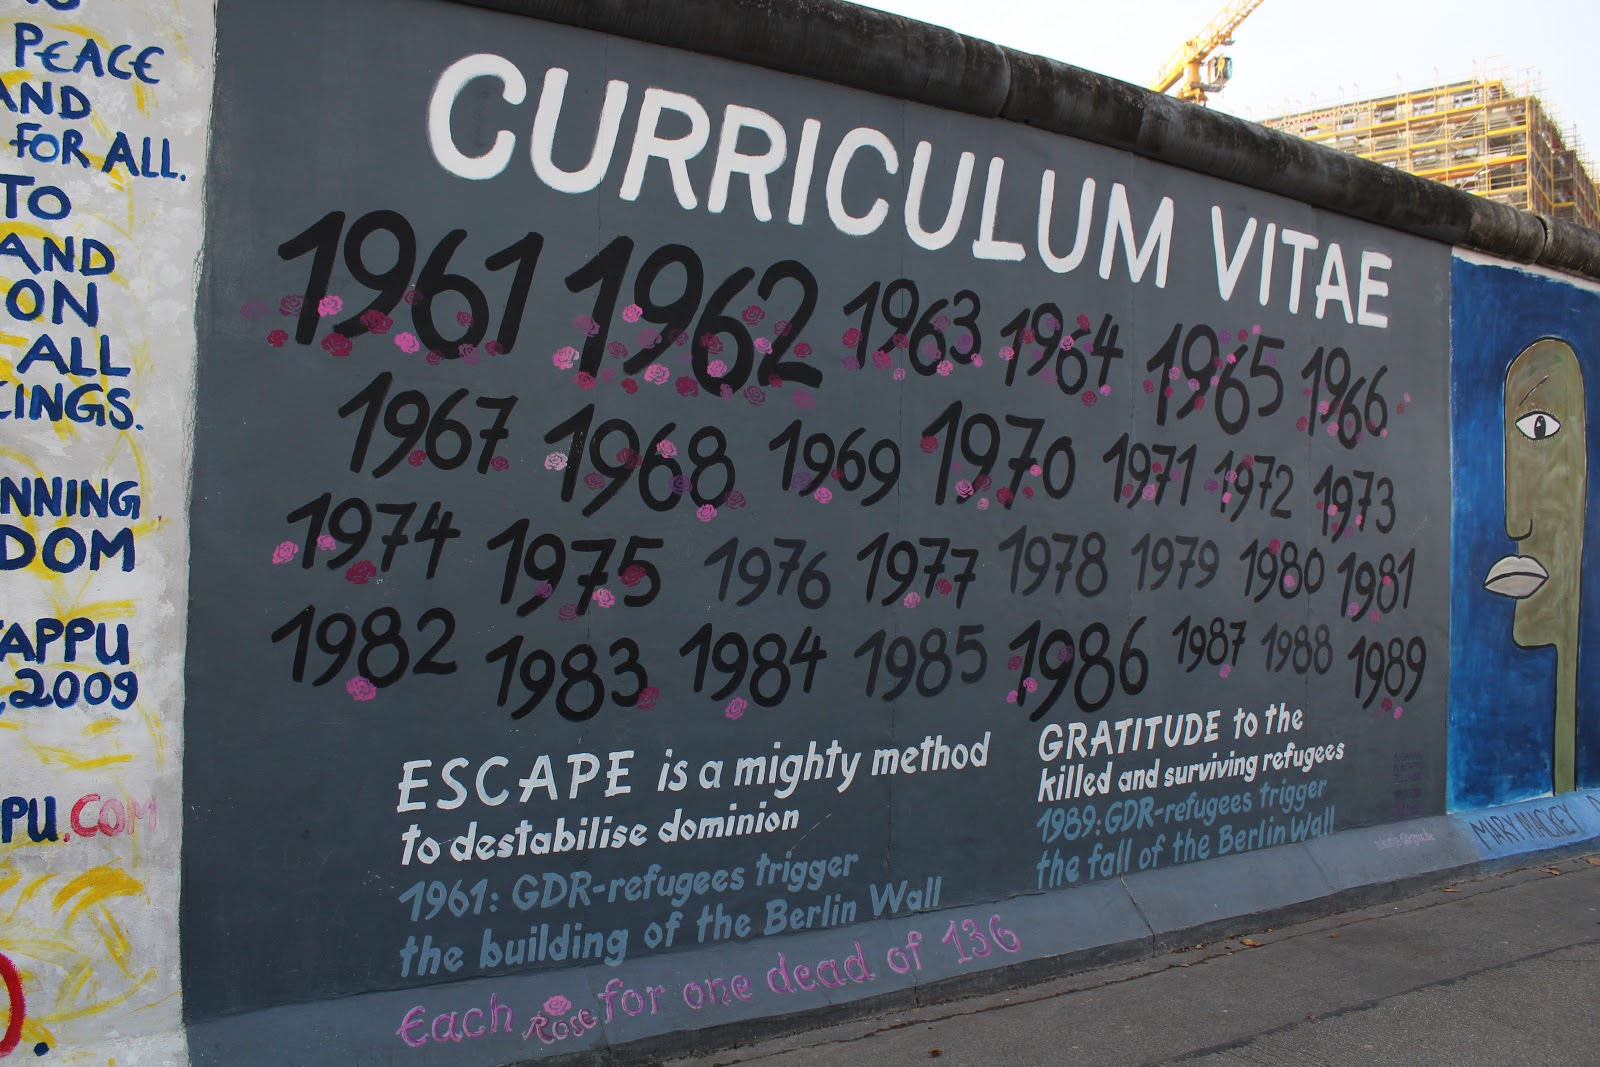 PEACE
AND
FOR ALL.
TO
AND
ON
ALL
INGS.
NNING
DOM
TAPPU
2009
PU.COM
CURRICULUM VITAE
1961 1962 1963 1964 1965 1966
1967 1968 1969 1970 1971 1972 1973
1974 1975 1976 1977 1978 1979 1980 1981
1982 1983 1984 1985 1986 1987 1988 1989
ESCAPE is a mighty method
to destabilise dominion
1961: GDR-refugees trigger
the building of the Berlin Wall
GRATITUDE to the
killed and surviving refugees
1989: GDR-refugees trigger
the fall of the Berlin Wall
Each Rose for one dead of 136
MARY MACKEY